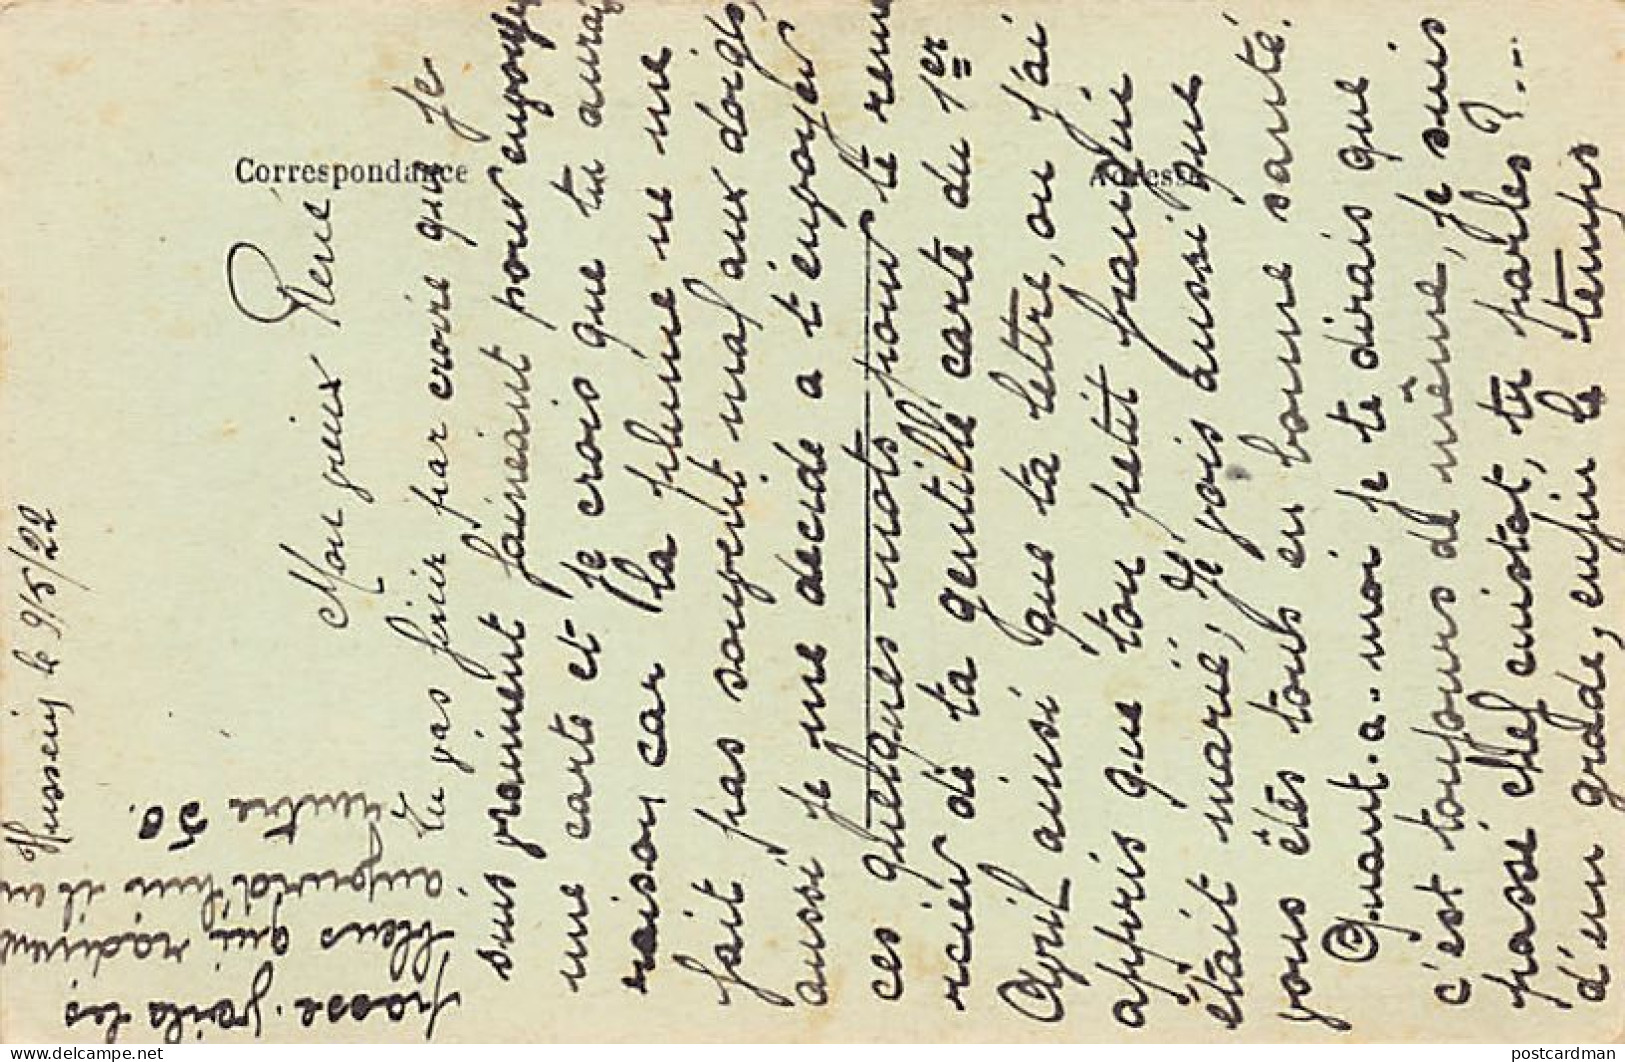 Correspondance
Adresse
Hussein le 9/5/22
Mon vieux René
Tu vas finir par croire que je
suis vraiment faineant pour envoyer
une carte et je crois que tu aurais
raison car la plume ne me
fait pas souvent mal aux doigts,
aussi je me decide a t'envoyer
ces quelques mots pour te reme
rcier de ta gentille carte du 1er
Avril ainsi que ta lettre, ou j'ai
appris que ton petit frangin
était marié, Je vois aussi que
vous êtes tous en bonne santé.
Quant-a-moi je te dirais que
c'est toujours de même, je suis
passé chef cuistot, tu parles ? ...
d'un grade, enfin le temps
passe. voila les
bleus qui radinent
aujourd'hui il en
rentre 50.
postcardman